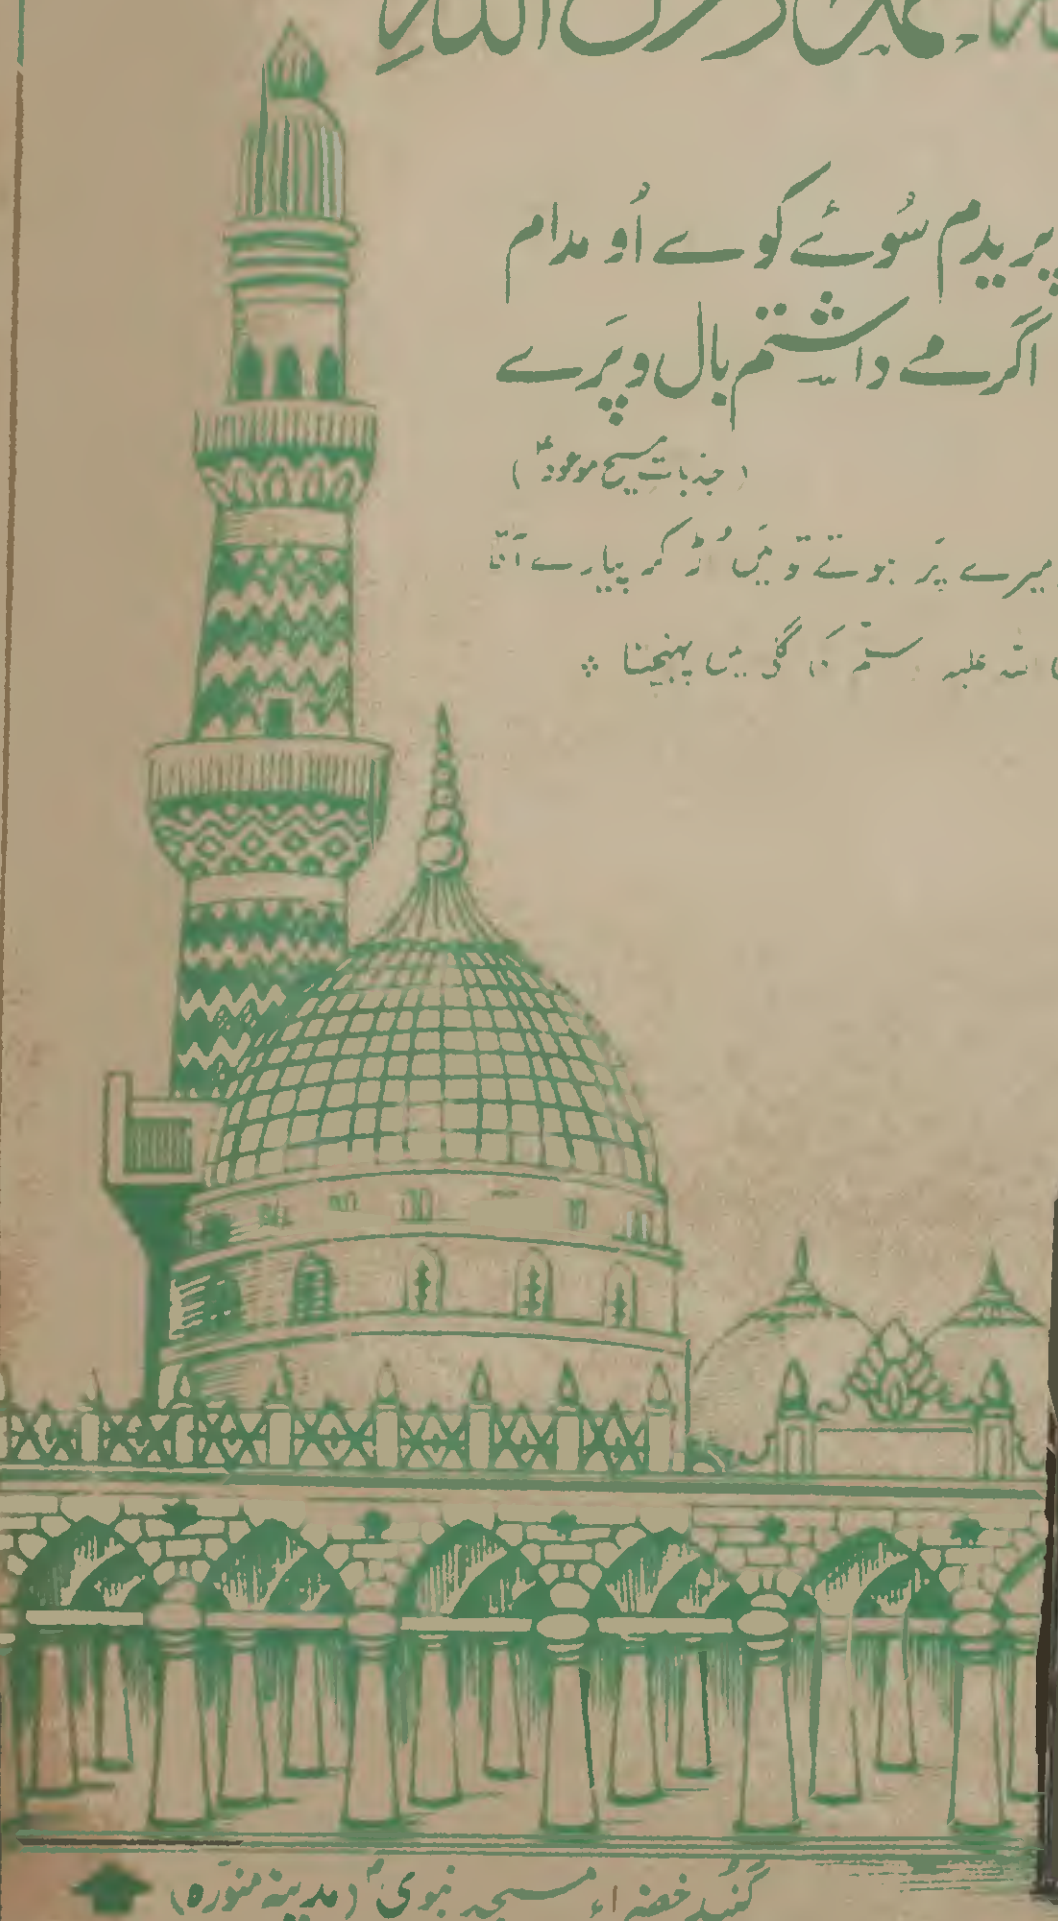 محمد رسول اللہ
پریدم سُوئے کوے اُو مدام
اگر مے داشتم بال و پَرے
(جذباتِ مسیح موعودؑ)
میرے پَر ہوتے تو مَیں اُڑ کر پیارے آقا
اللہ علیہ وسلّم کی گلی میں پہنچتا ⁘
گنبدِ خضراء مسجد نبویؐ (مدینہ منوّرہ)